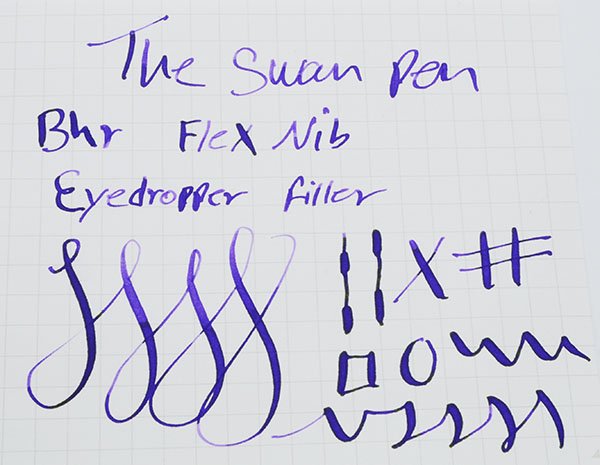 The Swan Pen
Bhr Flex Nib
Eyedropper filler